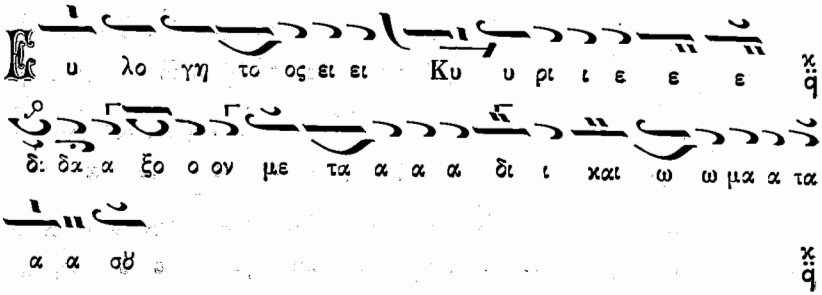 Ευ λο γη το ος ει ει Κυ υ ρι ι ε ε ε
δι δα α ξο ο ον με τα α α α δι ι και ω ω μα α τα
α α σȣ